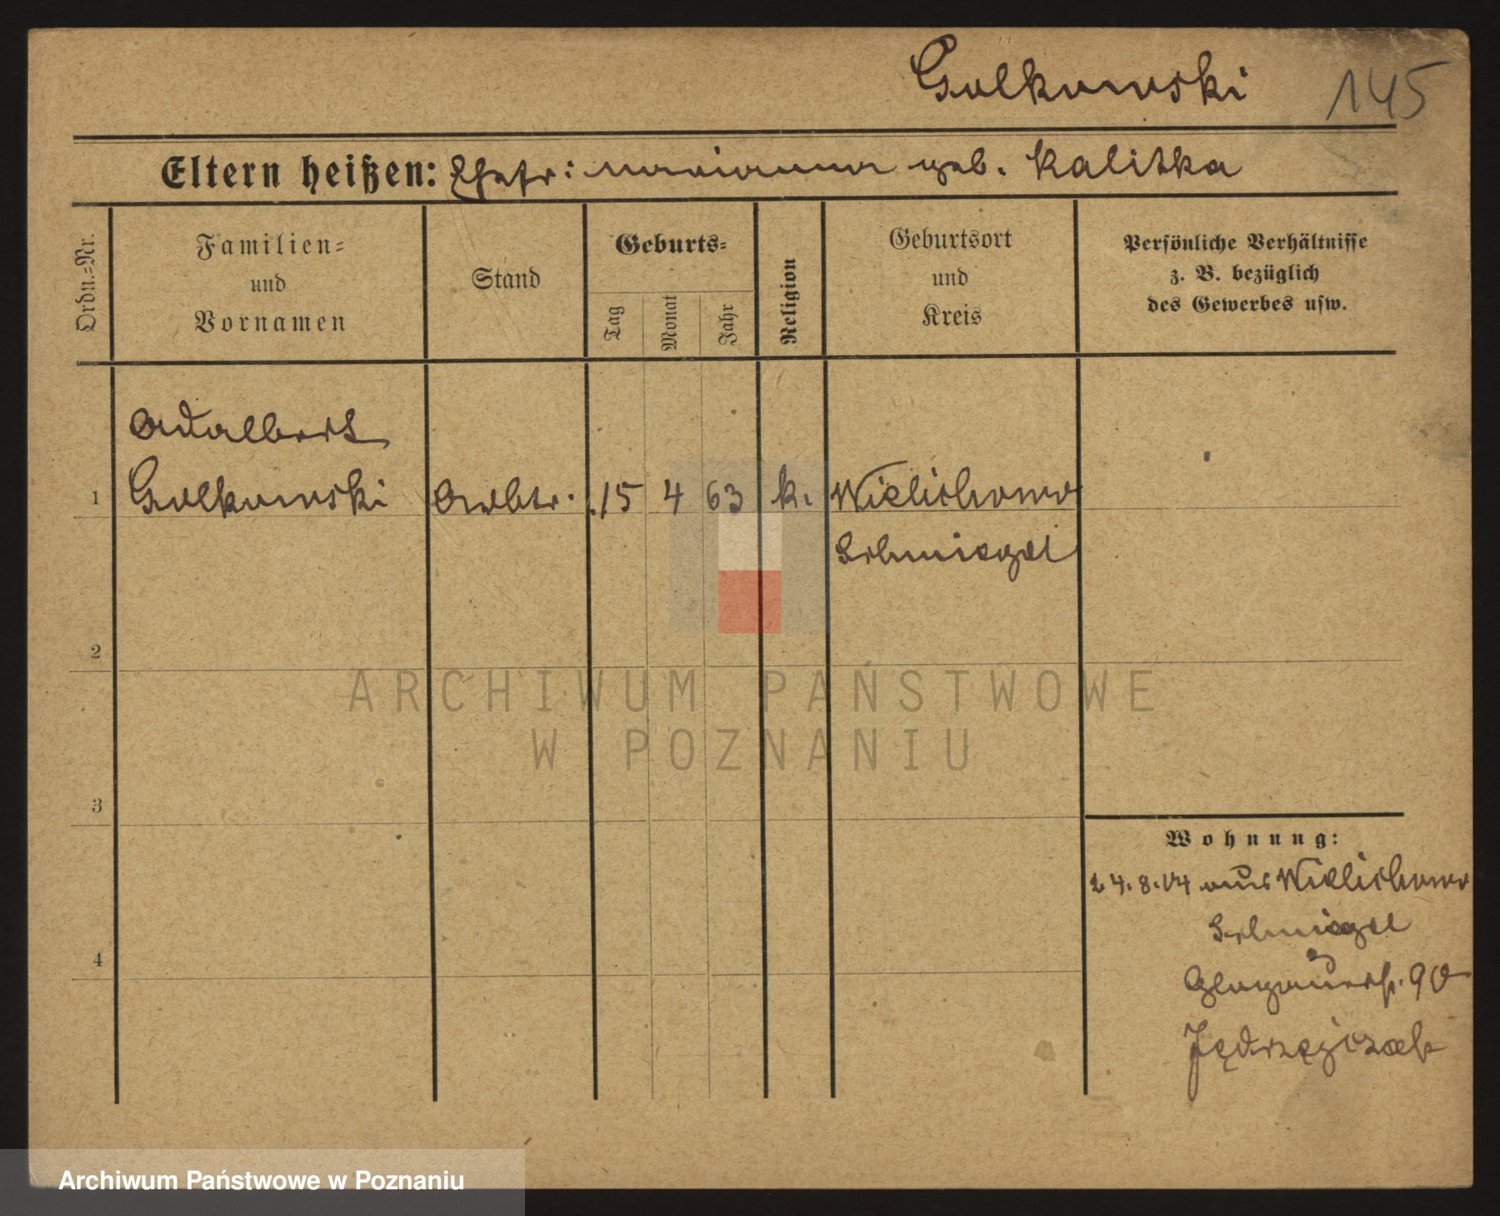 Golkowski 145
Eltern heißen: Ehefr: Marianna geb. Kalitka
Ordn.=Nr.
Familien=
und
Vornamen
Stand
Geburts=
Tag
Monat
Jahr
Religion
Geburtsort
und
Kreis
Persönliche Verhältnisse
z. B. bezüglich
des Gewerbes usw.
Adalbert
1 Golkowski Arbtr. 15 4 63 k. Wielichowo
Schmiegel
2
ARCHIWUM PAŃSTWOWE
W POZNANIU
3
Wohnung:
24.8.14 aus Wielichowo
Schmiegel
4
Glogauerstr. 90
Jędrzejczak
Archiwum Państwowe w Poznaniu